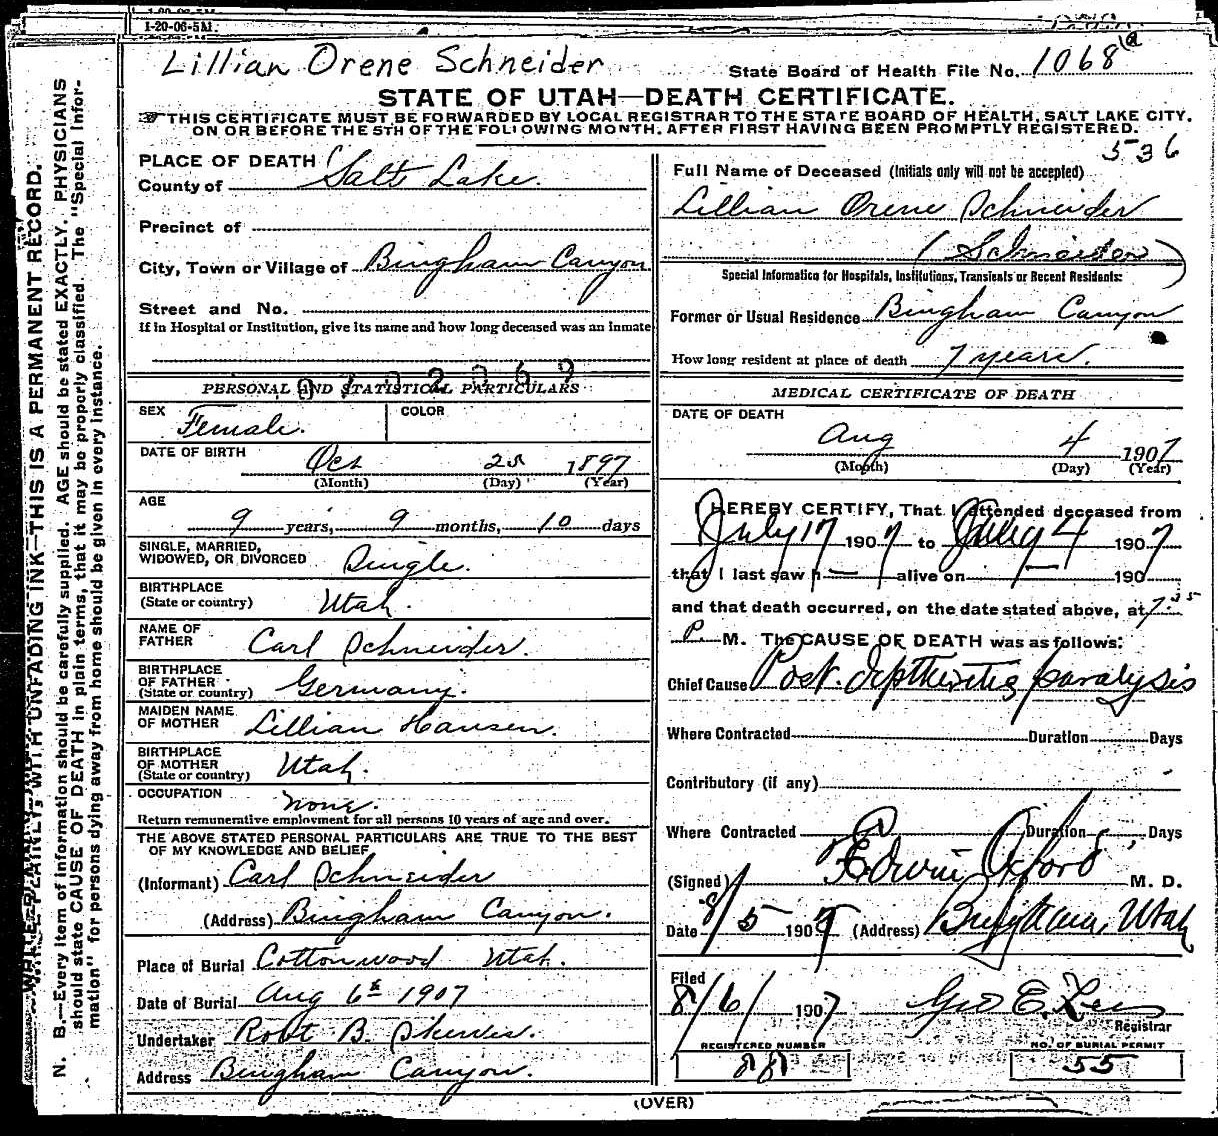 1-20-06-5M.
Lillian Orene Schneider
State Board of Health File No. 1068
STATE OF UTAH—DEATH CERTIFICATE.
THIS CERTIFICATE MUST BE FORWARDED BY LOCAL REGISTRAR TO THE STATE BOARD OF HEALTH, SALT LAKE CITY,
ON OR BEFORE THE 5TH OF THE FOLLOWING MONTH, AFTER FIRST HAVING BEEN PROMPTLY REGISTERED.
536
PLACE OF DEATH
County of Salt Lake.
Precinct of
City, Town or Village of Bingham Canyon
Street and No.
If in Hospital or Institution, give its name and how long deceased was an inmate
PERSONAL AND STATISTICAL PARTICULARS
SEX Female. COLOR
DATE OF BIRTH Oct 25 1897
(Month) (Day) (Year)
AGE
9 years, 9 months, 10 days
SINGLE, MARRIED,
WIDOWED, OR DIVORCED Single.
BIRTHPLACE
(State or country) Utah.
NAME OF
FATHER Carl Schneider.
BIRTHPLACE
OF FATHER
(State or country) Germany.
MAIDEN NAME
OF MOTHER Lillian Hansen.
BIRTHPLACE
OF MOTHER
(State or country) Utah.
OCCUPATION none.
Return remunerative employment for all persons 10 years of age and over.
THE ABOVE STATED PERSONAL PARTICULARS ARE TRUE TO THE BEST
OF MY KNOWLEDGE AND BELIEF
(Informant) Carl Schneider
(Address) Bingham Canyon.
Place of Burial Cottonwood Utah.
Date of Burial Aug 6th 1907
Undertaker Robt B.
Address Bingham Canyon.
Full Name of Deceased (Initials only will not be accepted)
Lillian Orene Schneider
(Schneider)
Special Information for Hospitals, Institutions, Transients or Recent Residents:
Former or Usual Residence Bingham Canyon
How long resident at place of death 7 years.
MEDICAL CERTIFICATE OF DEATH
DATE OF DEATH
Aug 4 1907
(Month) (Day) (Year)
I HEREBY CERTIFY, That I attended deceased from
July 17 1907 to Aug 4 1907
that I last saw h— alive on — 190
and that death occurred, on the date stated above, at 7.35
P. M. The CAUSE OF DEATH was as follows:
Chief Cause Post. diptheritic paralysis
Where Contracted Duration Days
Contributory (if any)
Where Contracted Duration Days
(Signed) Edwin Oxford M. D.
Date 8/5 1907 (Address) Bingham, Utah
Filed
8/6/ 1907 Geo E. Lee
Registrar
REGISTERED NUMBER NO. OF BURIAL PERMIT
88 55
(OVER)
WRITE PLAINLY, WITH UNFADING INK—THIS IS A PERMANENT RECORD.
N. B.—Every item of information should be carefully supplied. AGE should be stated EXACTLY. PHYSICIANS
should state CAUSE OF DEATH in plain terms, that it may be properly classified. The "Special Infor-
mation" for persons dying away from home should be given in every instance.